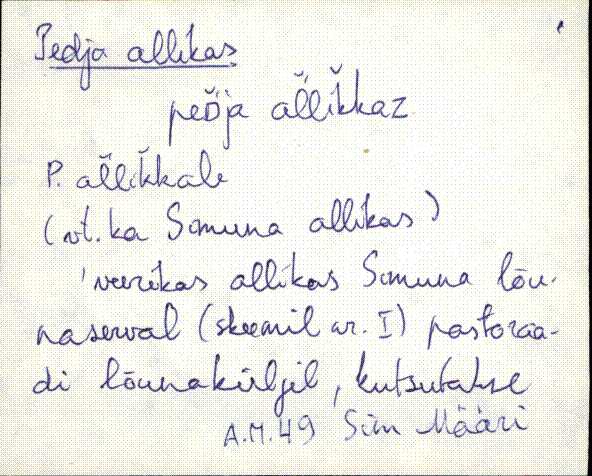 Pedja allikas
peD̆ja ăl̆lik̆kaz
P. ăl̆lik̆kale
(vt. ka Simuna allikas)
'veerikas allikas Simuna lõu-
naserval (skeemil nr. I) pastoraa-
di lõunaküljel, kutsutakse
A.M. 49 Sim Määri